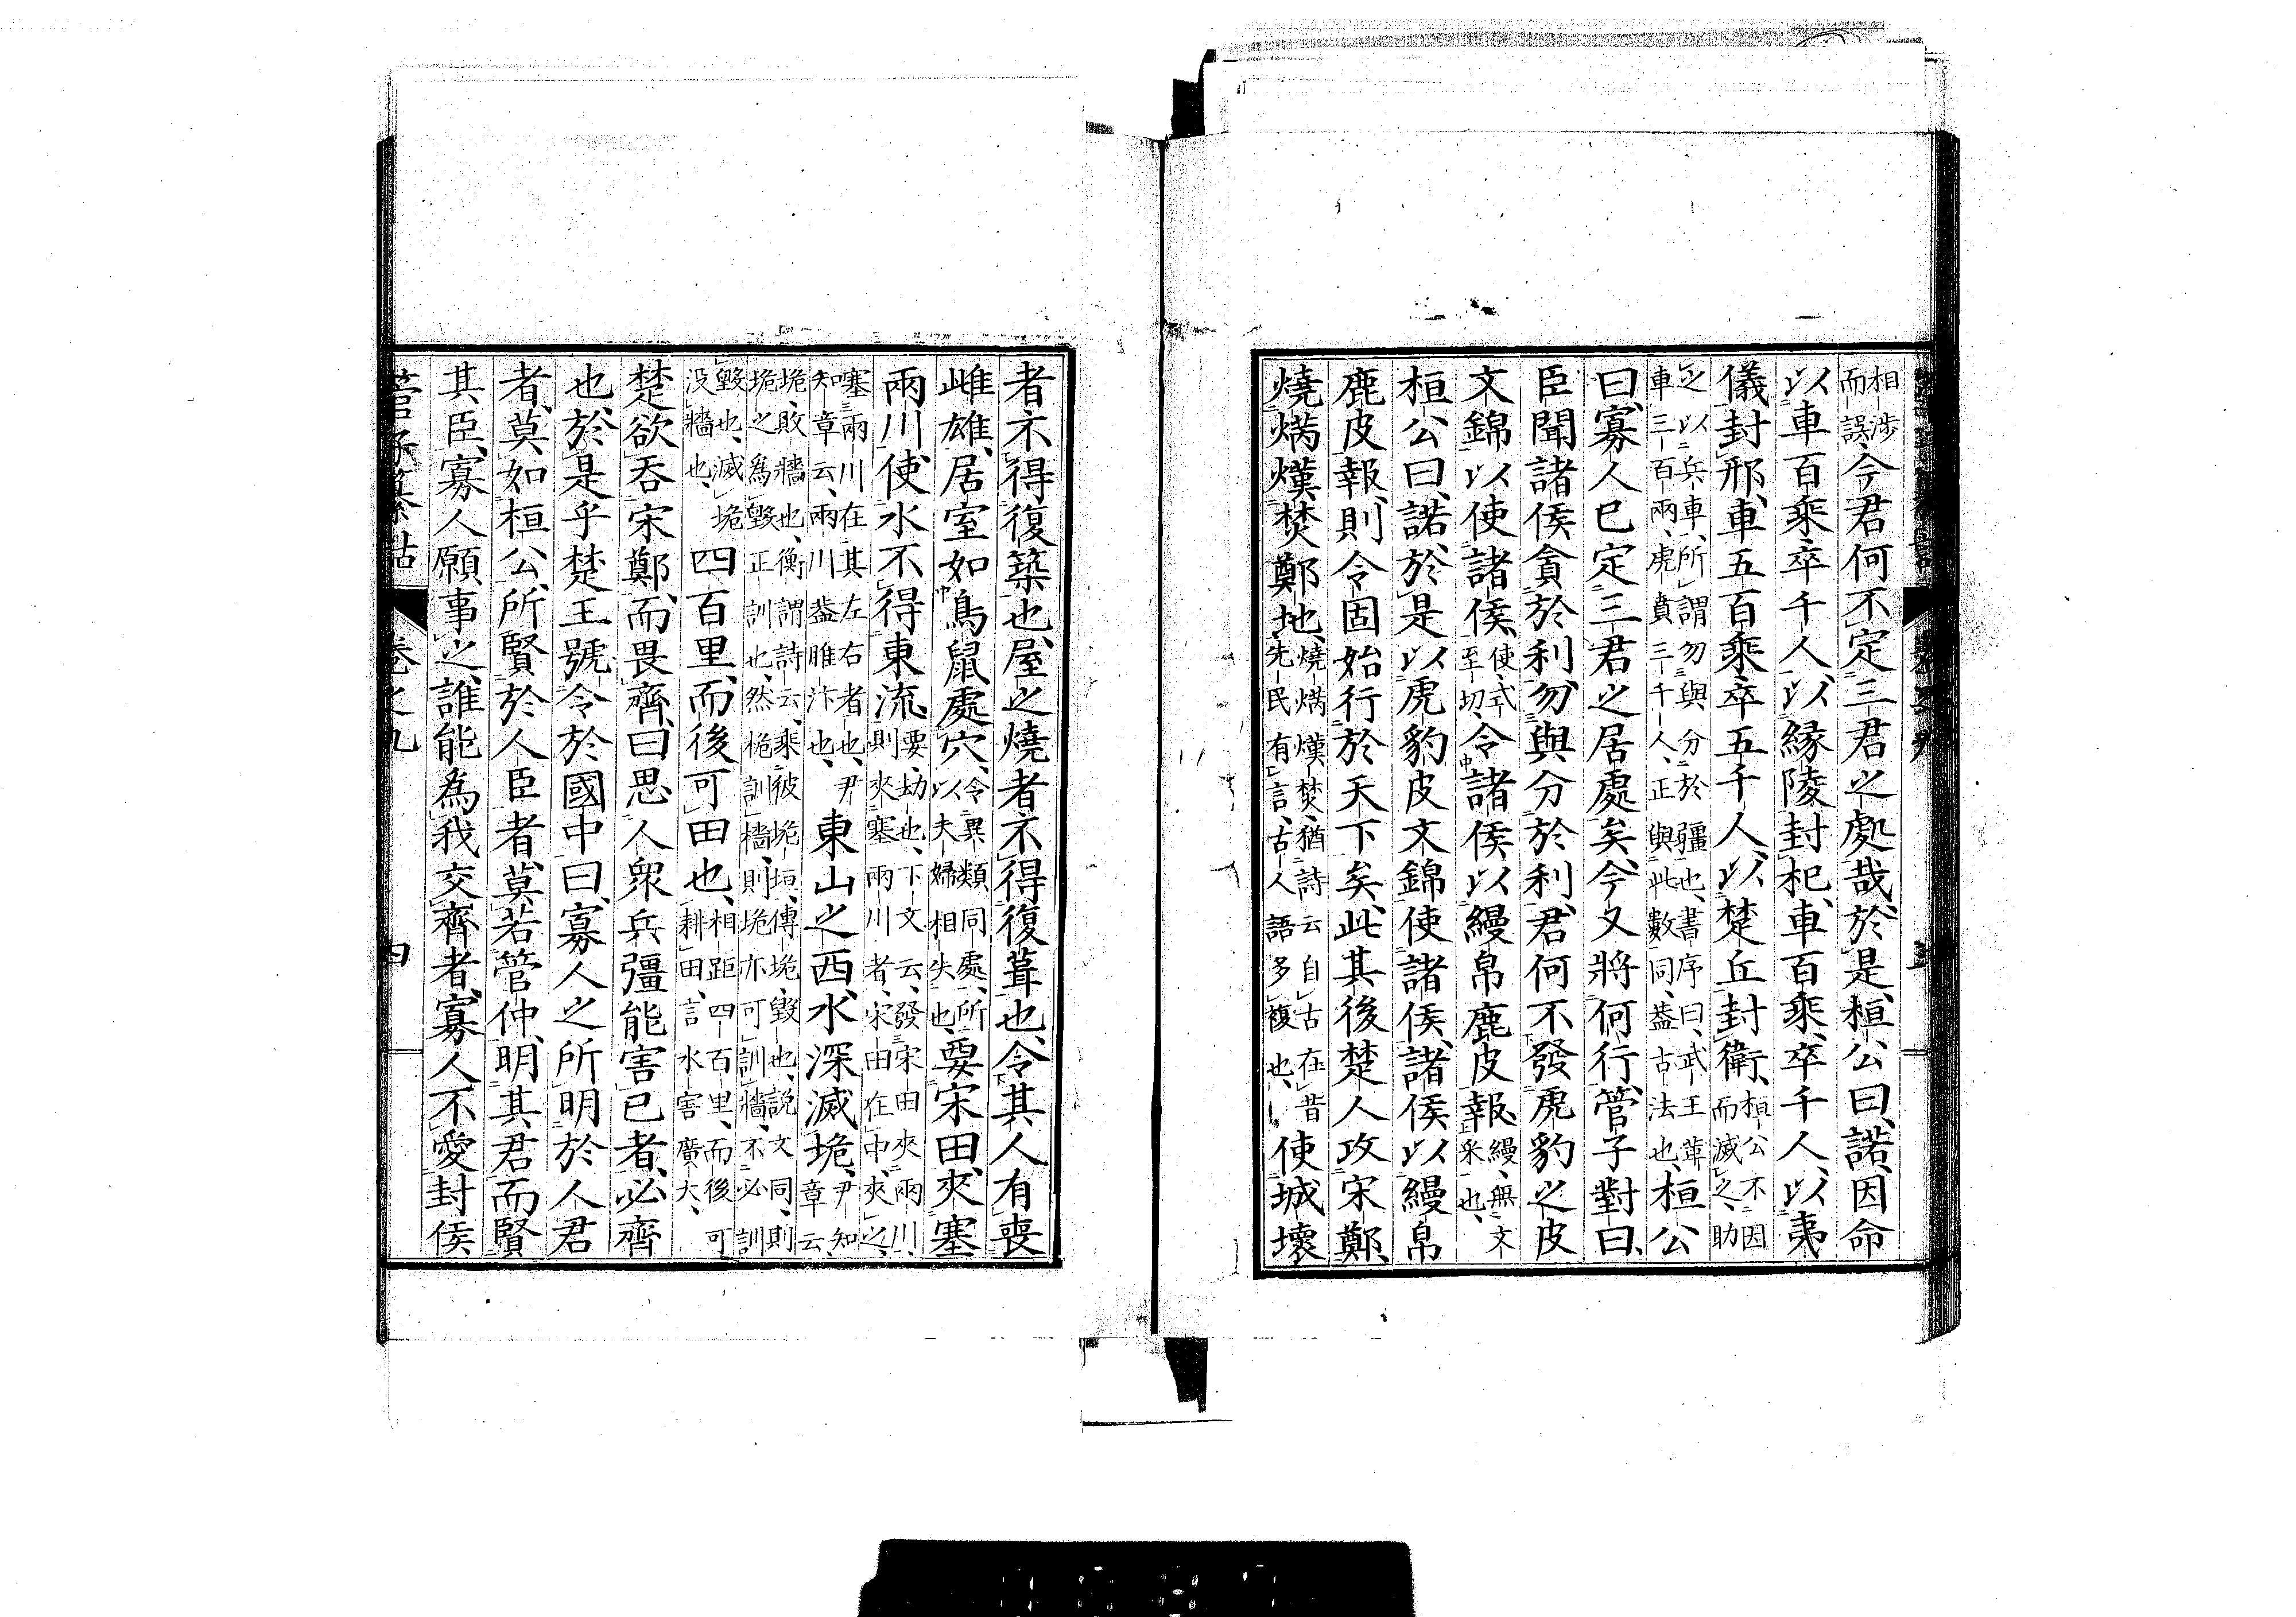 相涉
而誤、今君何不定三君之處哉、於是桓公曰、諾、因命
以車百乘、卒千人、以緣陵封杞、車百乘、卒千人、以夷
儀封邢、車五百乘、卒五千人、以楚丘封衛、桓公不因而滅之、助
之以兵車、所謂勿與分於疆也、書序曰、武王
車三百兩、虎賁三千人、正與此數同、蓋古法也、桓公
曰、寡人已定三君之居處矣、今又將何行、管子對曰、
臣聞諸侯貪於利、勿與分於利、君何不發虎豹之皮
文錦以使諸侯、使、式至切、令諸侯以縵帛鹿皮報、縵、無文采也、
桓公曰、諾、於是以虎豹皮文錦使諸侯、諸侯以縵帛
鹿皮報、則令固始行於天下矣、此其後楚人攻宋鄭、
燒焫熯焚鄭地、燒焫熯焚、猶詩云自古在昔
先民有言、古人語多複也、使城壞
者不得復築也、屋之燒者不得復葺也、令其人有喪
雌雄、居室如鳥鼠處穴、令異類同處、所
以夫婦相失也、要宋田、夾塞
兩川、使水不得東流、要、劫也、下文云、發宋田夾兩川、
則夾塞兩川者、宋田在中、夾之
塞兩川在其左右者也、尹
知章云、兩川蓋雎汴也、東山之西、水深滅垝、尹知章云、
垝、敗牆也、衡謂詩云、乘彼垝垣、傳、垝、毀也、說文同、則
垝之為毀正訓也、然垝訓牆、則垝亦可訓牆、不必訓
毀也、滅垝
沒牆也、四百里、而後可田也、相距四百里、而後可
耕田、言水害廣大、
楚欲吞宋鄭、而畏齊、曰思人眾兵彊能害己者、必齊
也、於是乎楚王號令於國中曰、寡人之所明於人君
者、莫如桓公、所賢於人臣者、莫若管仲、明其君而賢
其臣、寡人願事之、誰能為我交齊者、寡人不愛封侯
管子纂詁 卷之九 四